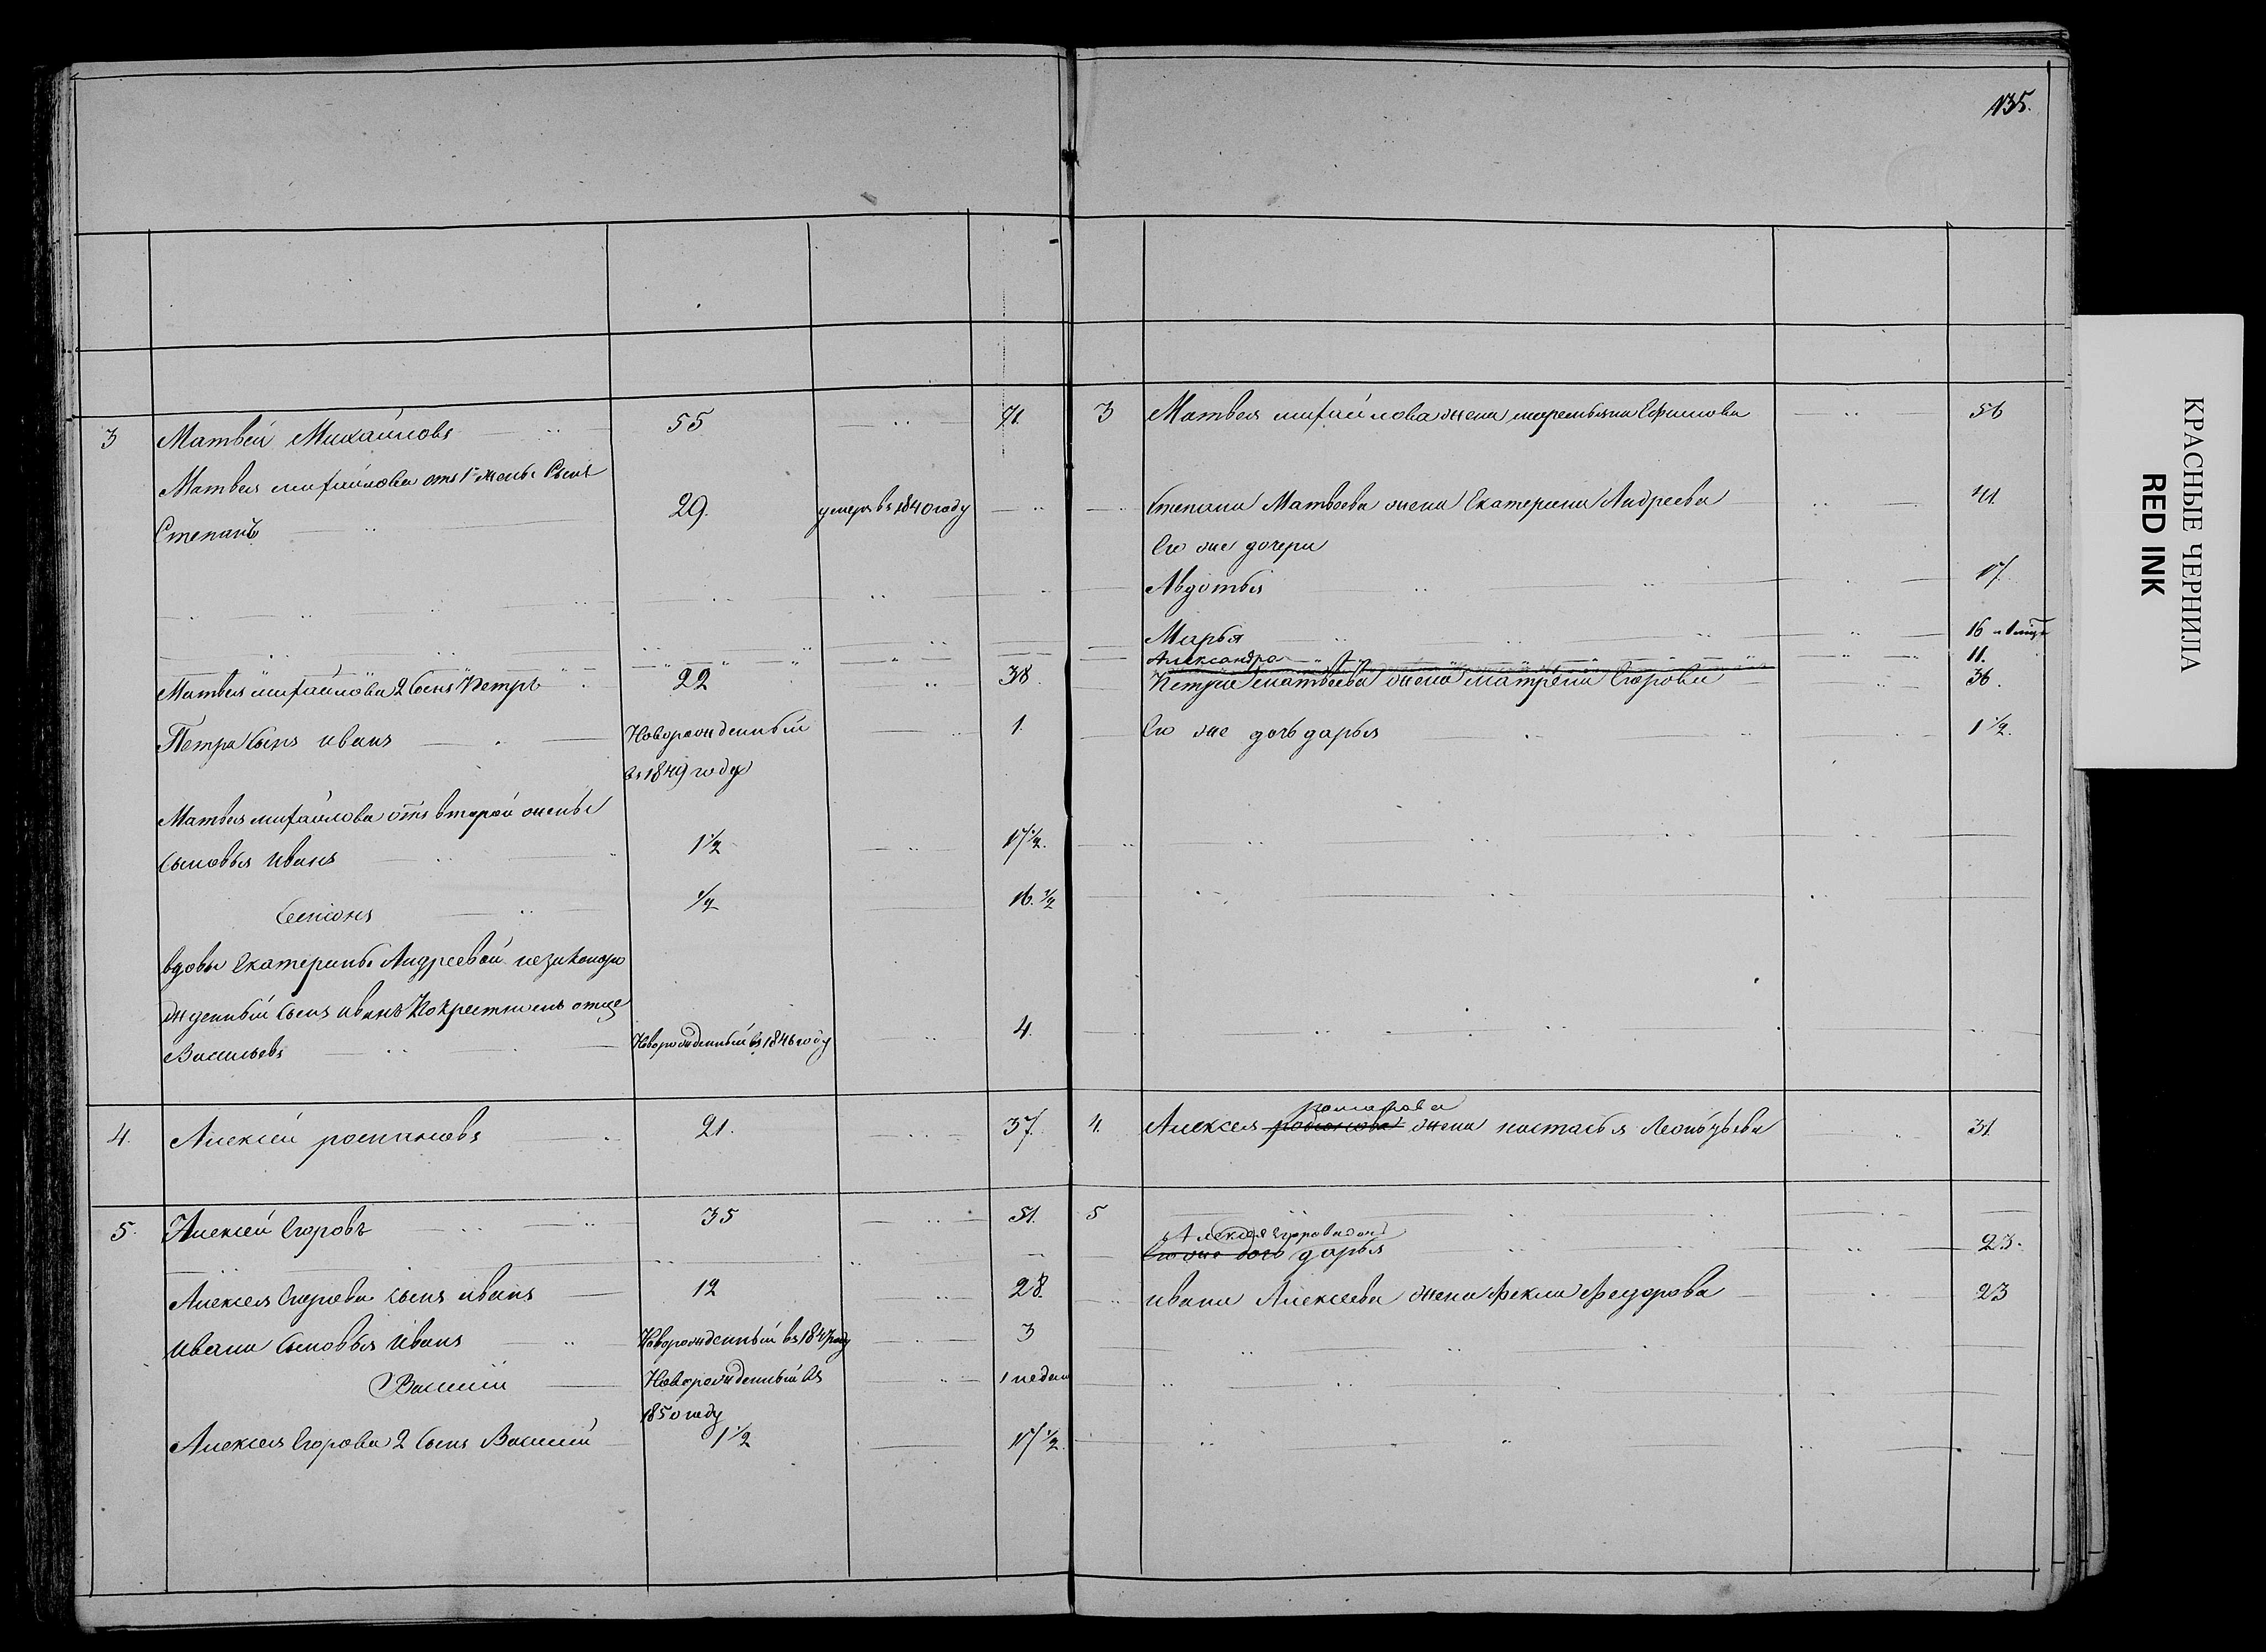 135.
3 Матвей Михайловъ 55 71.
Матвея михайлова отъ 1й жены Сынъ
Степанъ 29. умеръ въ 1840 году
Матвея михайлова 2 Сынъ Петръ 22 38.
Петра Сынъ иванъ Новорожденный 1.
въ 1849 году
Матвея михайлова отъ второй жены
Сыновья иванъ 1½ 17½.
Семіонъ ½ 16.½
вдовы Екатерины Андреевой незаконоро
жденный Сынъ иванъ По крестномъ отце
Васильевъ Новорожденный въ 1846 году 4.
4. Алексей 21. 37.
5. Алексей Егоровъ 35 51.
Алексея Егорова сынъ иванъ 12 28.
ивана Сыновья иванъ Новорожденный въ 1847 году 3
Василий Новорожденный въ 1 недели
1850 году
Алексея Егорова 2 Сынъ Василий 1½ 17½.
3 Матвея михайлова жена Ефимова 56
Степана Матвеева жена Екатерина Андреева 41.
Его же дочери
Авдотья 17.
Марья 16
Александра 11.
Петра матвеева жена матрена Егорова 36.
Его же дочь дарья 1½.
4. Алексея жена настасья Леонтьева 31.
5
Алексея Егорова дочь
Его же дочь дарья 23.
ивана Алексеева жена Фекла Федорова 23
КРАСНЫЕ ЧЕРНИЛА
RED INK